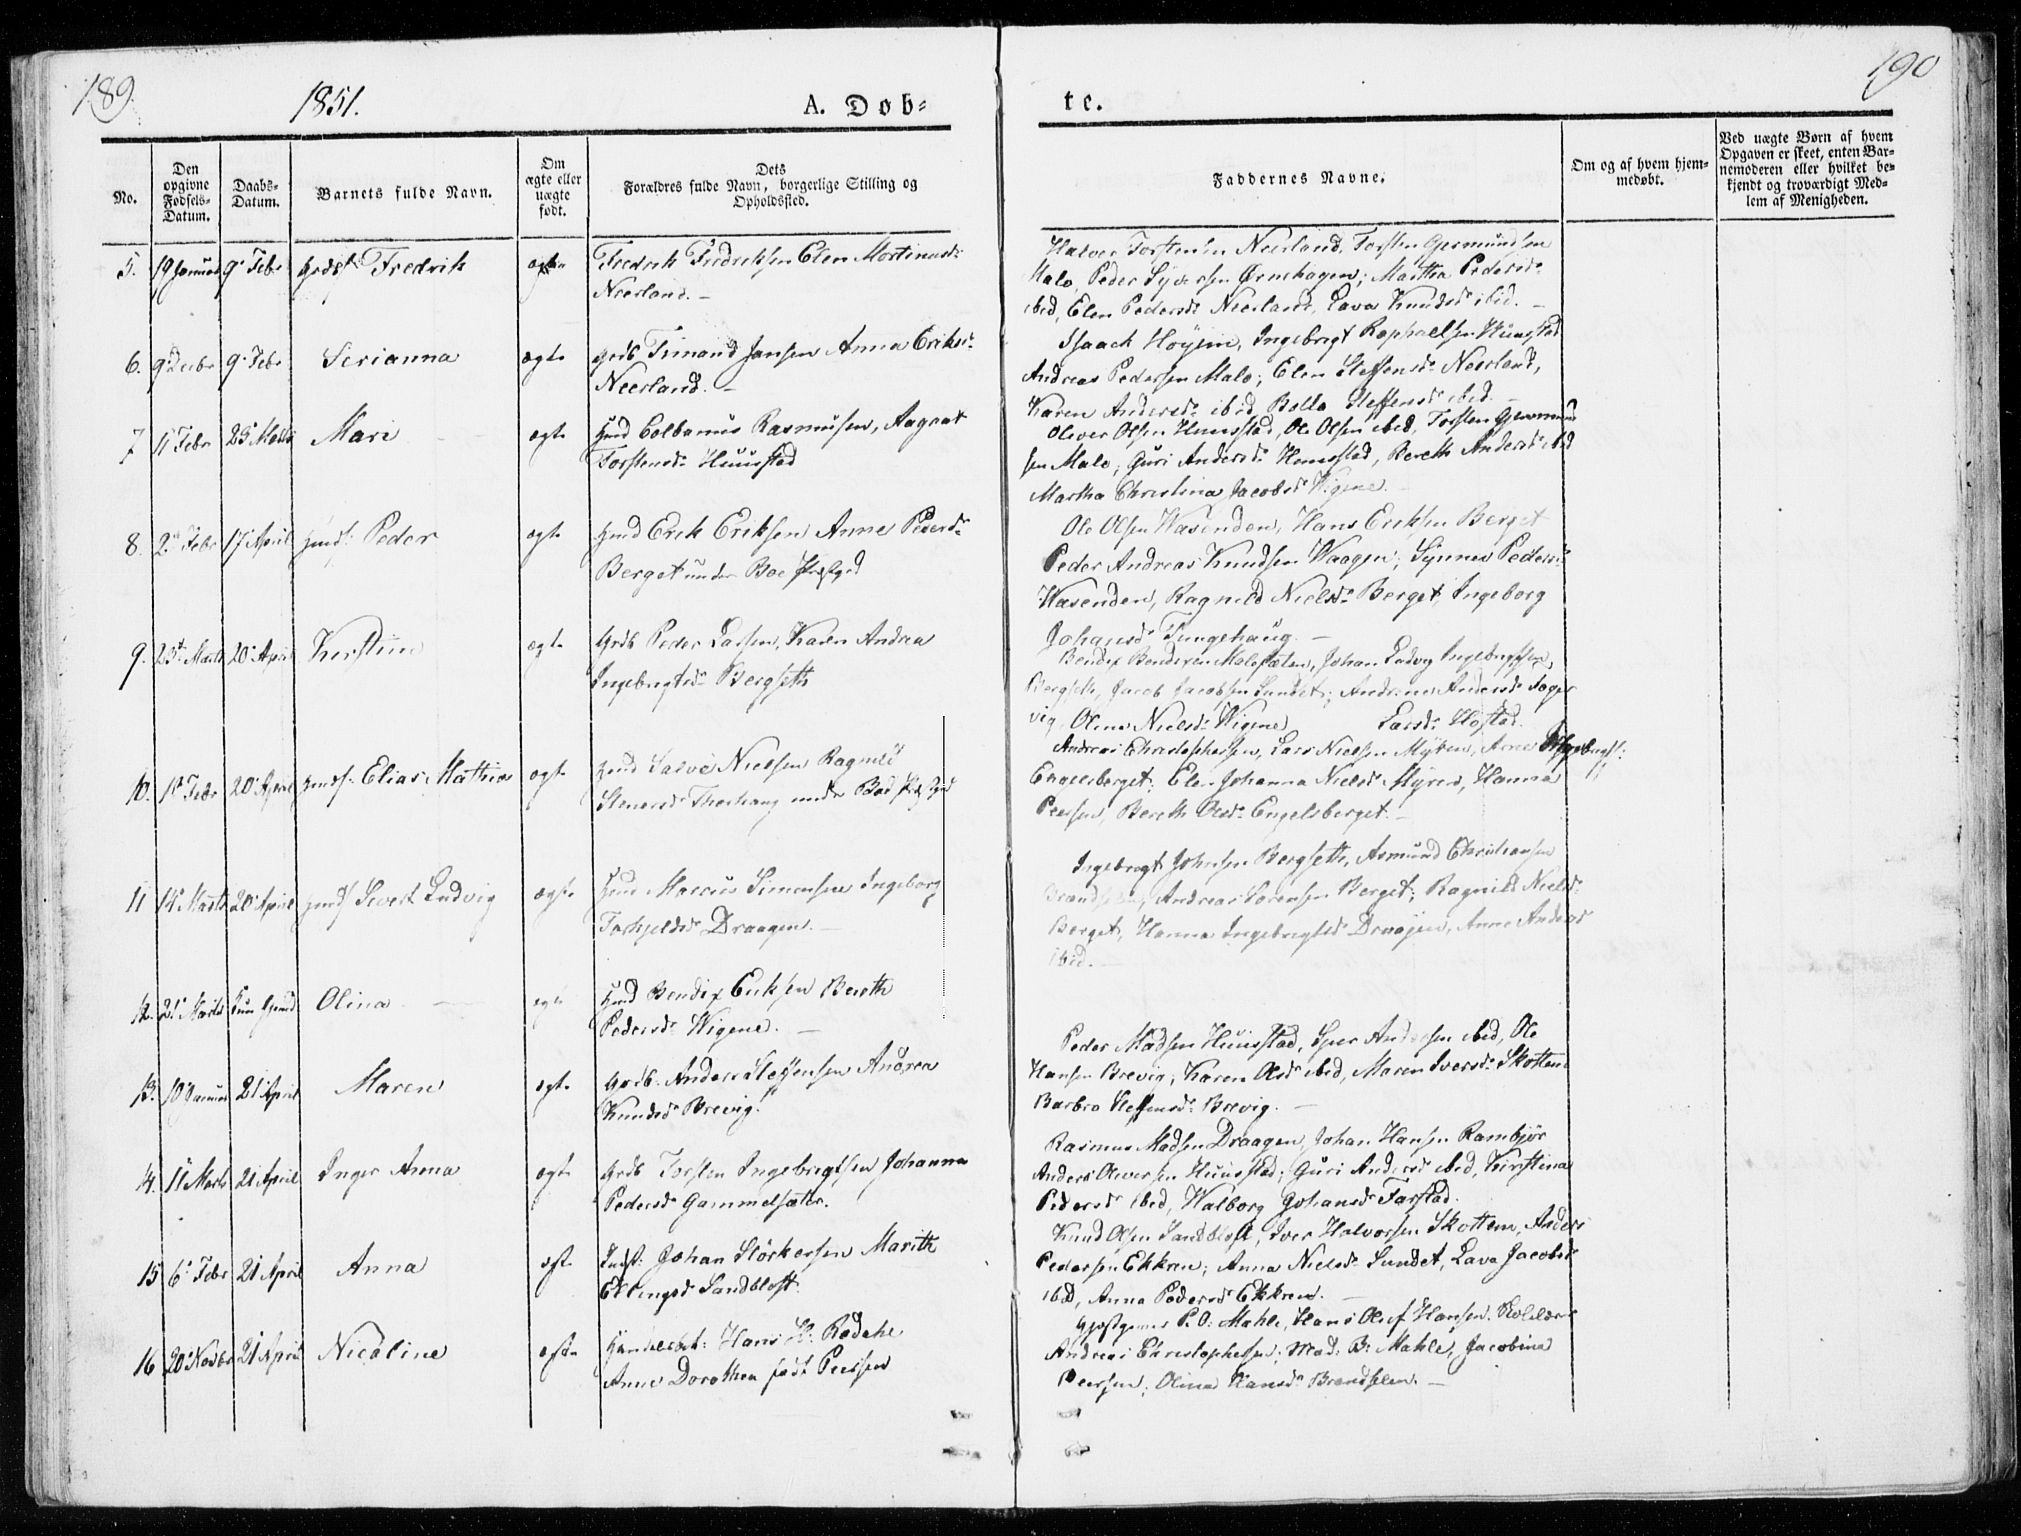 189.
1851.
A. Døb=
te.
190
No.
Den opgivne Fødsels-Datum.
Daabs-Datum.
Barnets fulde Navn.
Om ægte eller uægte født.
Dets Forældres fulde Navn, borgerlige Stilling og Opholdssted.
Faddernes Navne.
Om og af hvem hjem-medøbt.
Ved uægte Børn af hvem Opgaven er skeet, enten Bar-nemoderen eller hvilket be-kjendt og troværdigt Med-lem af Menigheden.
5. 19 Januar 9 Febr Fredrik ægte Fredrik Fredriksen Elen Mortinusd:
Neerland. –
Halvor Torstensen Neerland, Torsten Germundsen
Malo, Peder Syversen Ørnehagen; Martha Pedersd:
ibid, Elen Pedersd: Neerland, Lava Knudsd: ibid. –
6. 9 Decbr 9 Febr Serianna ægte Grdb Simand Jansen Anna Eriksd:
Neerland. –
Isaach Høyem, Ingebrigt Raphaelsen Huusstad
Andreas Pedersen Malo; Elen Steffensd: Neerland,
Karen Andersd: ibid, Bolla Steffensd: ibid. –
7 11 Febr 23 Marts Mari ægte Hmd Colbanus Rasmussen, Aagaat
Torstensd: Huusstad
Oliver Olsen Huusstad, Ole Olsen ibid, Torsten Germund
sen Malo; Guri Andersd: Huusstad, Bereth Andersd: ibid
Martha Christina Jacobsd: Wigene.
8. 2 Febr 17 April Peder ægte Hmd Erik Eriksen Anne Pedersd:
Berget under Boe Præstegd
Ole Olsen Wasenden, Hans Eriksen Berget
Peder Andreas Knudsen Waagen; Synnev Pedersd:
Wasenden, Ragnild Nielsd: Berget, Ingeborg
Johansd: Tungehaug. –
9. 23 Marts 20 April Kirstine ægte Grdb Peder Larsen, Karen Andrea
Ingebrigtsd: Bergseth
Bendix Bendixen Malosæten, Johan Ludvig Ingebrigtsen,
Bergseth, Jacob Jacobsen Sundet; Andrine Andersd:
vig, Oline Nielsd: Wigene, Larsd: Hostad.
10. 1 Febr 20 April Elias Mathias ægte Hmd Salve Nielsen Ragnild
Stenersd: under Boe Præstgd
Andreas Christophersen, Lars Nielsen Myren, Arne
Engelsberget; Elen Johanna Nielsd: Myren, Hanna
Peersen, Bereth Olsd: Engelsberget. –
11 14 Marts 20 April Sivert Ludvig ægte Hmd Marcus Simensen Ingeborg
Torkjeldsd: Draagen. –
Ingebrigt Johnsen Bergseth, Asmund Christiansen
Andreas Sørensen Berget; Ragnild Nielsd:
Berget, Hanna Ingebrigtsd: Draagen, Anne Andersd
ibid. –
12. 21 Marts Olina ægte Hmd Bendix Eriksen Bereth
Pedersd: Wigene. –
13. 10 Januar 21 April Maren ægte Grdb: Anders Steffensen Andrea
Knudsd: Brevig.
Peder Madsen Huusstad, Iver Andersen ibid, Ole
Hansen Brevig; Karen Olsd: ibid, Maren Iversd: Skottem
Barbro Steffensd: Brevig. –
14. 11 Marts 21 April Inger Anna ægte Grdb Torsten Ingebrigtsen Johanna
Pedersd: Gammelsæter.
Rasmus Madsen Draagen, Johan Hansen Rambjør
Anders Oliversen Huusstad; Guri Andersd: ibid, Kirstina
Pedersd: ibid, Walborg Johansd: Farstad.
15 6 Febr 21 April Anna ægte Indst: Johan Størkersen Marith
Erlingsd Sandblost.
Knud Olsen Sandblost, Iver Halvorsen Skottem, Anders
Pedersen Ekkren; Anna Nielsd: Sundet, Lava Jacobsd
ibid, Anna Pedersd: Ekkren. –
16 20 Novbr 21 April Nicoline ægte Handelsbet: Hans H. Rødahl
Anne Dorothea født Peersen
Gjestgiver P. O. Mahle, Hans Oluf Hansen, Skolelærer
Andreas Christophersen; Mad: B. Mahle, Jacobina
Peersen, Olina Hansd: